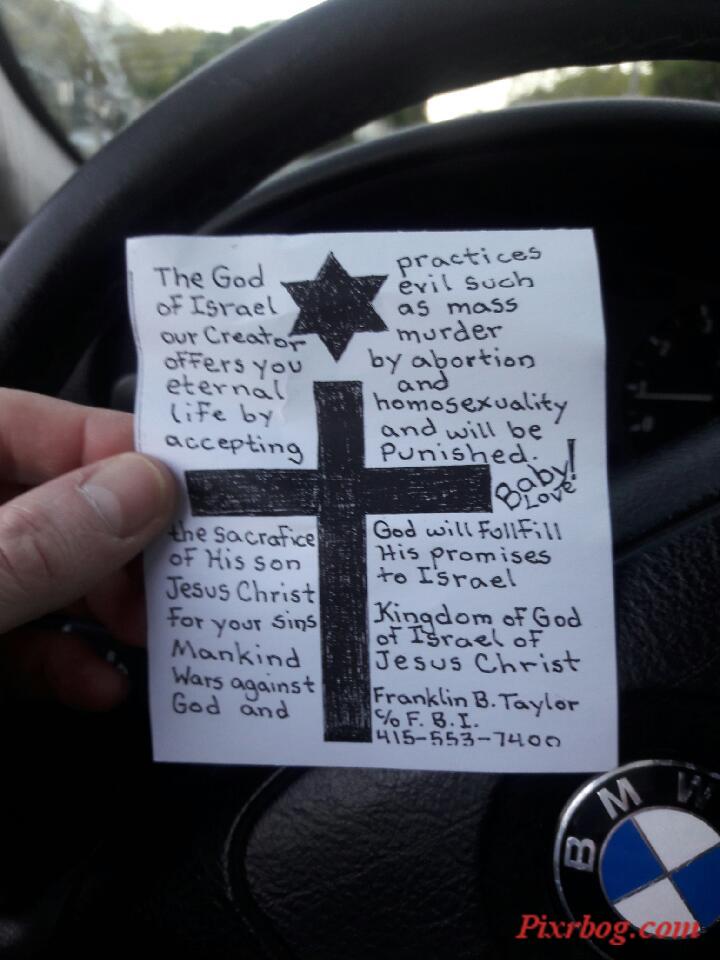 The God
of Israel
our Creator
offers you
eternal
life by
accepting
the sacrafice
of His son
Jesus Christ
for your sins
Mankind
Wars against
God and
practices
evil such
as mass
murder
by abortion
and
homosexuality
and will be
Punished.
Baby!
Love
God will Fullfill
His promises
to Israel
Kingdom of God
of Israel of
Jesus Christ
Franklin B. Taylor
c/o F. B. I.
415-553-7400
BMW
Pixrbog.com